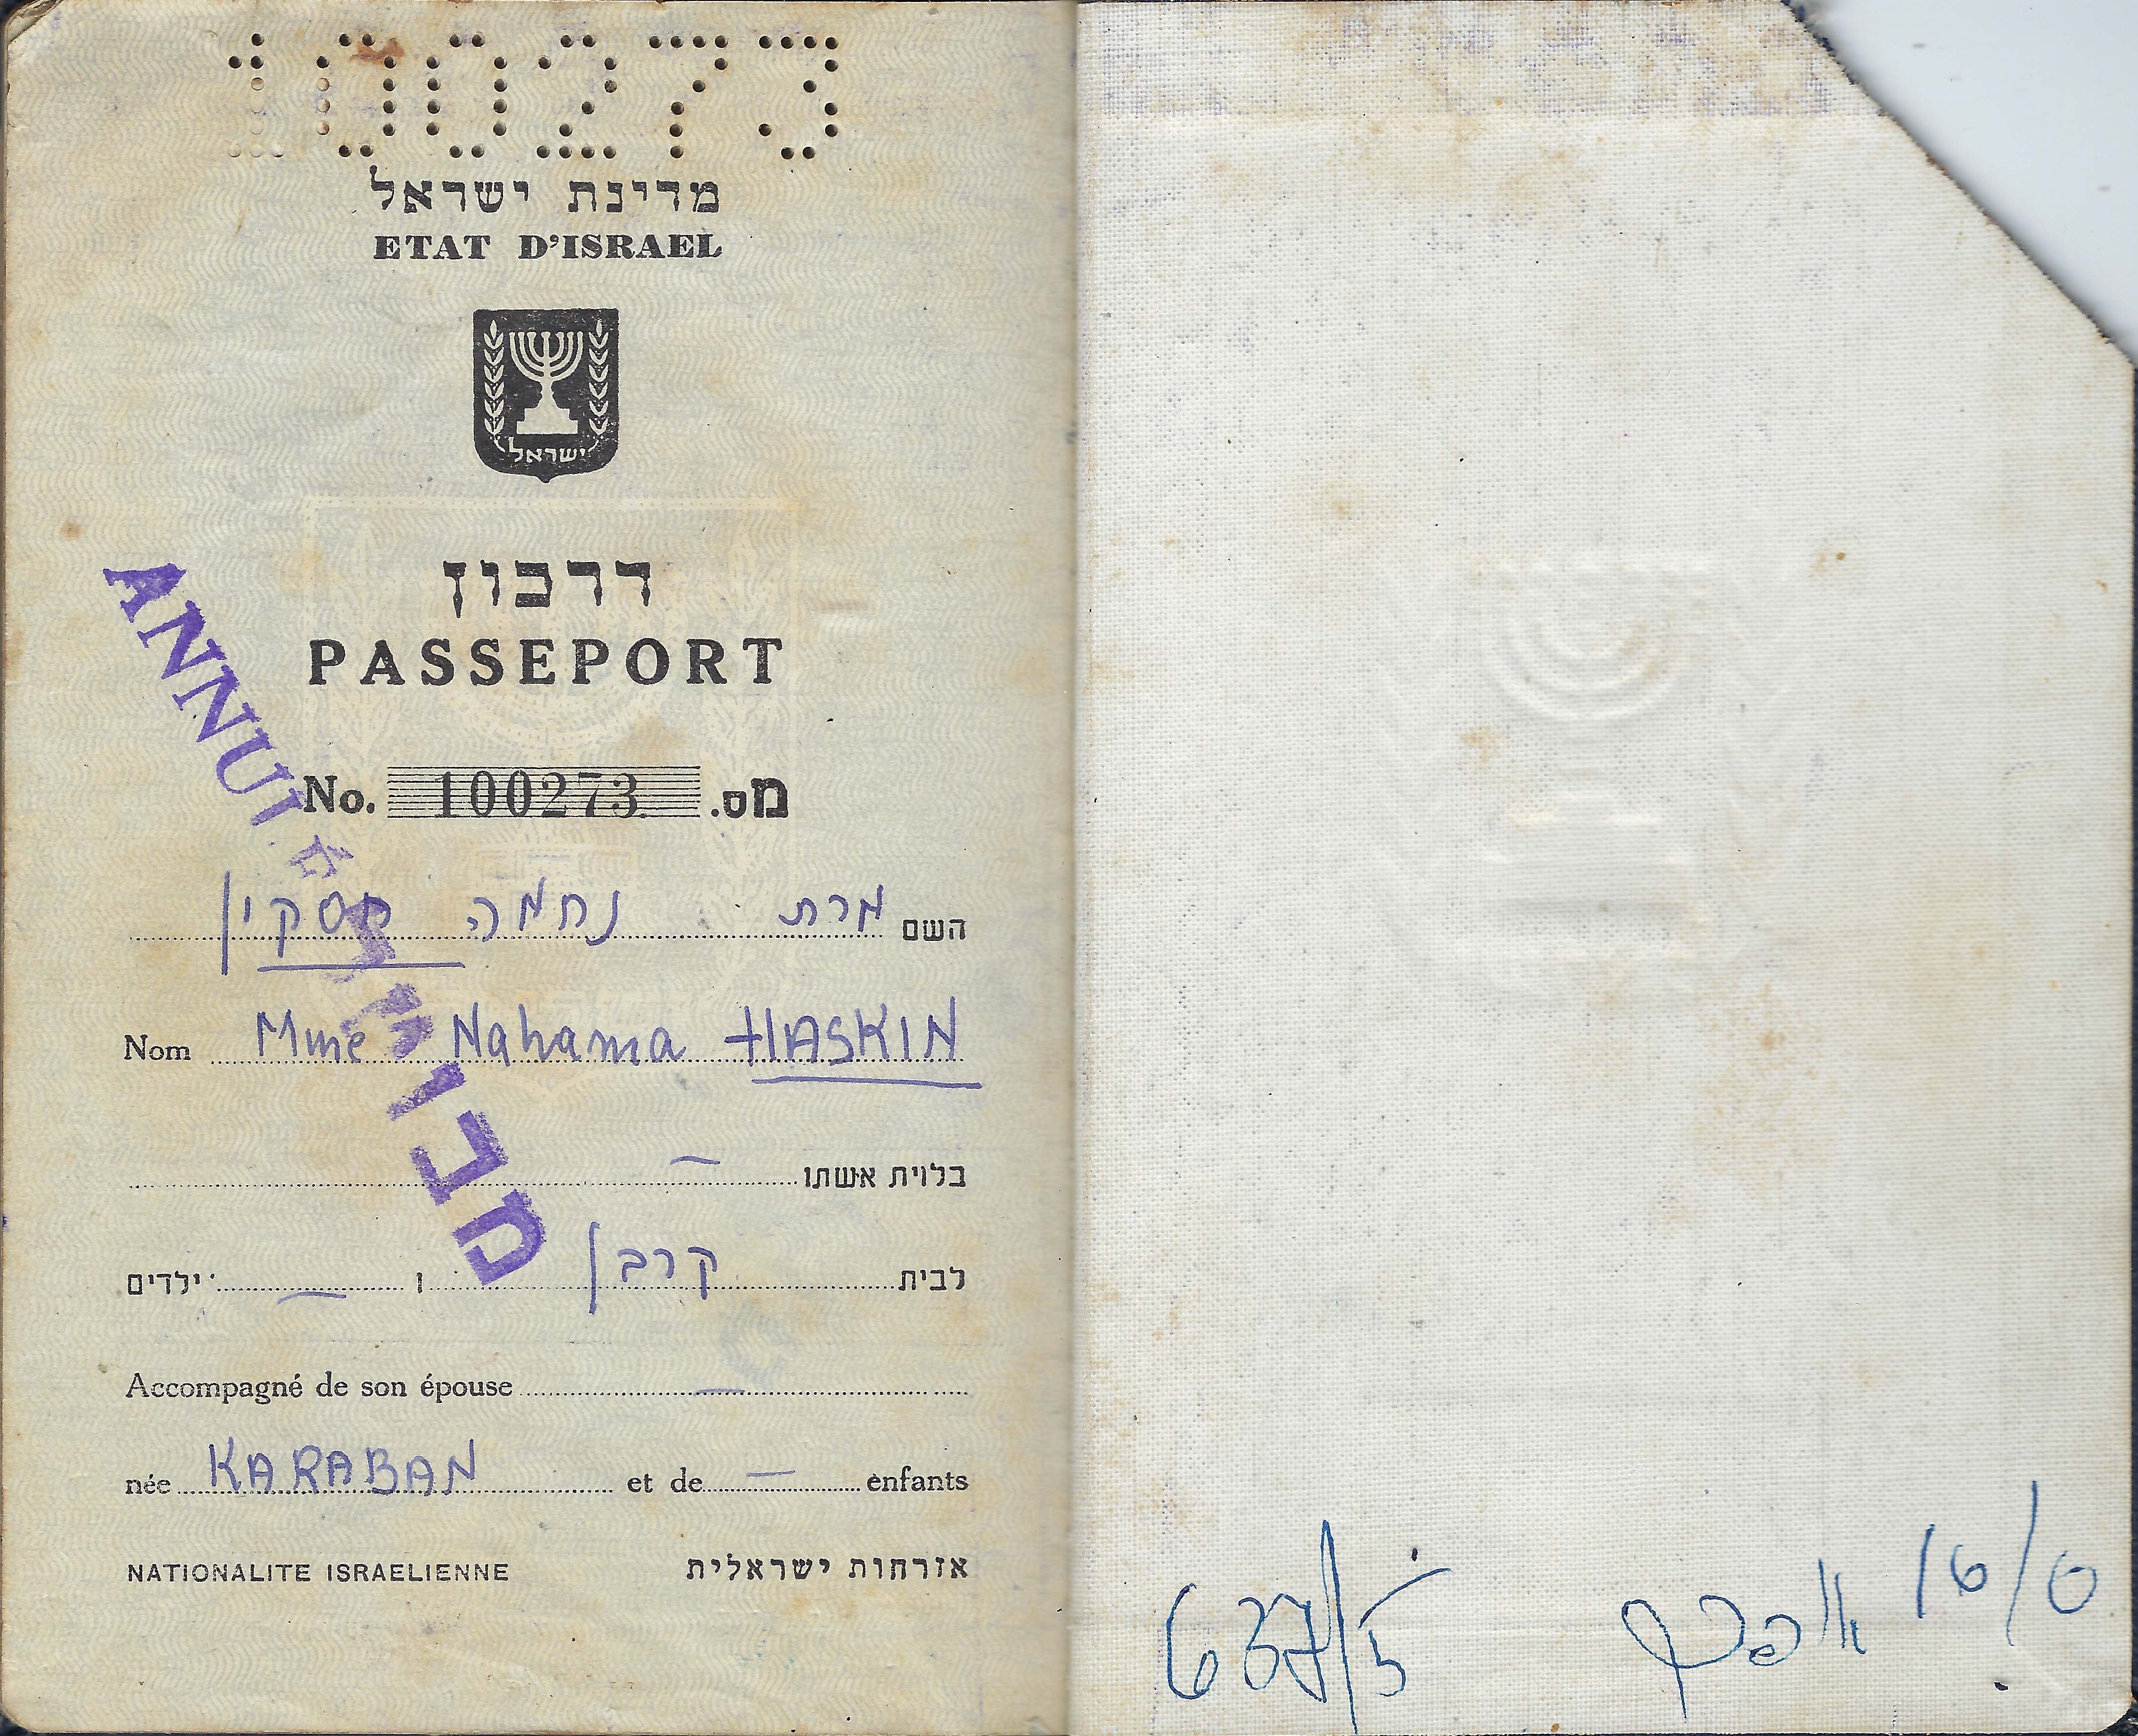 100273
מדינת ישראל
ETAT D'ISRAEL
ישראל
דרכון
PASSEPORT
No. 100273 מס.
השם מרת נחמה חסקין
Nom Mme Nahama HASKIN
בלוית אשתו —
לבית קרבן ו — ילדים
Accompagné de son épouse —
née KARABAN et de — enfants
NATIONALITE ISRAELIENNE אזרחות ישראלית
ANNULÉ
מבוטל
637/5